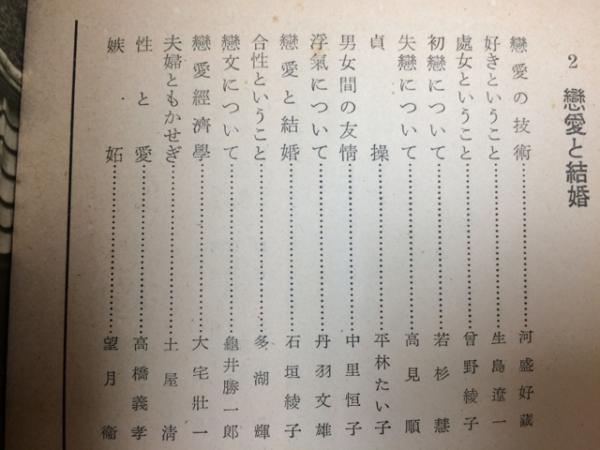 2 戀愛と結婚
戀愛の技術……河盛好藏
好きということ……生島遼一
處女ということ……曾野綾子
初戀について……若杉慧
失戀について……高見順
貞操……平林たい子
男女間の友情……中里恒子
浮氣について……丹羽文雄
戀愛と結婚……石垣綾子
合性ということ……多湖輝
戀文について……龜井勝一郎
戀愛經濟學……大宅壯一
夫婦ともかせぎ……土屋清
性と愛……高橋義孝
嫉妬……望月衞